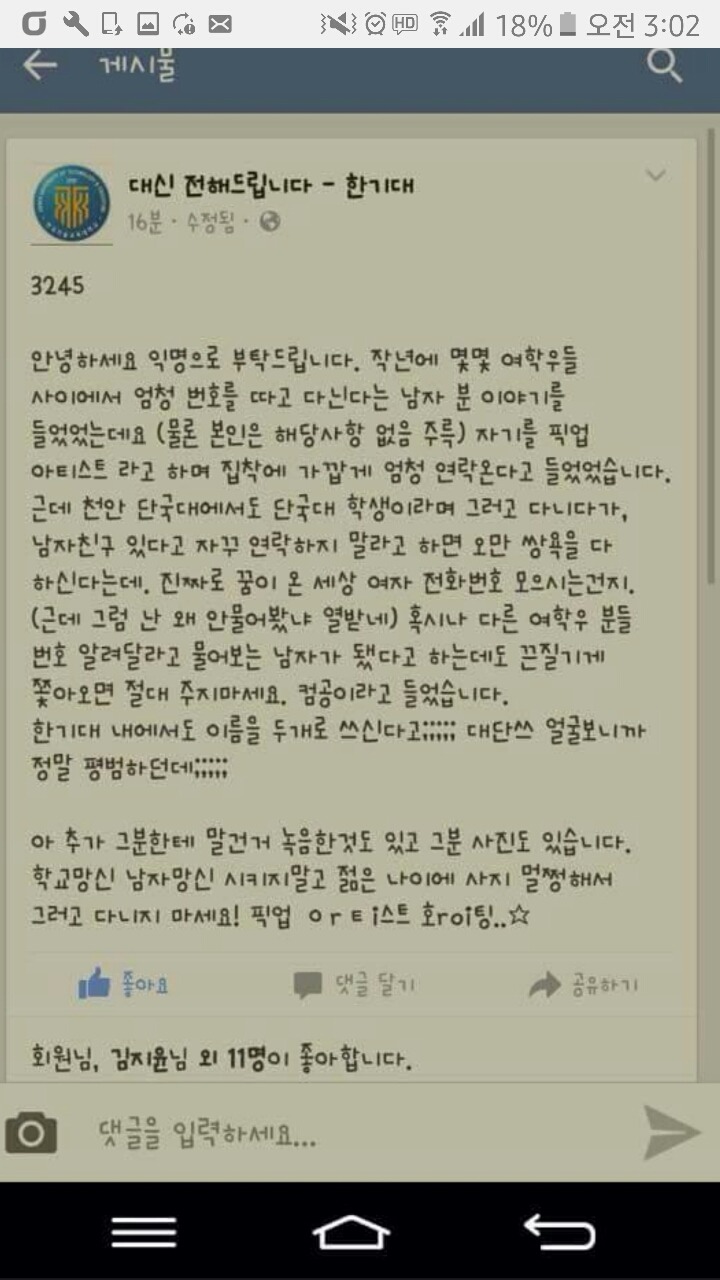 18% 오전 3:02
게시물
대신 전해드립니다 - 한기대
16분 · 수정됨 ·
3245
안녕하세요 익명으로 부탁드립니다. 작년에 몇몇 여학우들
사이에서 엄청 번호를 따고 다닌다는 남자 분 이야기를
들었었는데요 (물론 본인은 해당사항 없음 주륵) 자기를 픽업
아티스트 라고 하며 집착에 가깝게 엄청 연락온다고 들었었습니다.
근데 천안 단국대에서도 단국대 학생이라며 그러고 다니다가,
남자친구 있다고 자꾸 연락하지 말라고 하면 오만 쌍욕을 다
하신다는데. 진짜로 꿈이 온 세상 여자 전화번호 모으시는건지.
(근데 그럼 난 왜 안물어봤냐 열받네) 혹시나 다른 여학우 분들
번호 알려달라고 물어보는 남자가 됐다고 하는데도 끈질기게
쫓아오면 절대 주지마세요. 컴공이라고 들었습니다.
한기대 내에서도 이름을 두개로 쓰신다고;;;;; 대단쓰 얼굴보니까
정말 평범하던데;;;;;
아 추가 그분한테 말건거 녹음한것도 있고 그분 사진도 있습니다.
학교망신 남자망신 시키지말고 젊은 나이에 사지 멀쩡해서
그러고 다니지 마세요! 픽업 ㅇrㅌi스트 호roi팅..☆
좋아요 댓글 달기 공유하기
회원님, 김지윤님 외 11명이 좋아합니다.
댓글을 입력하세요...